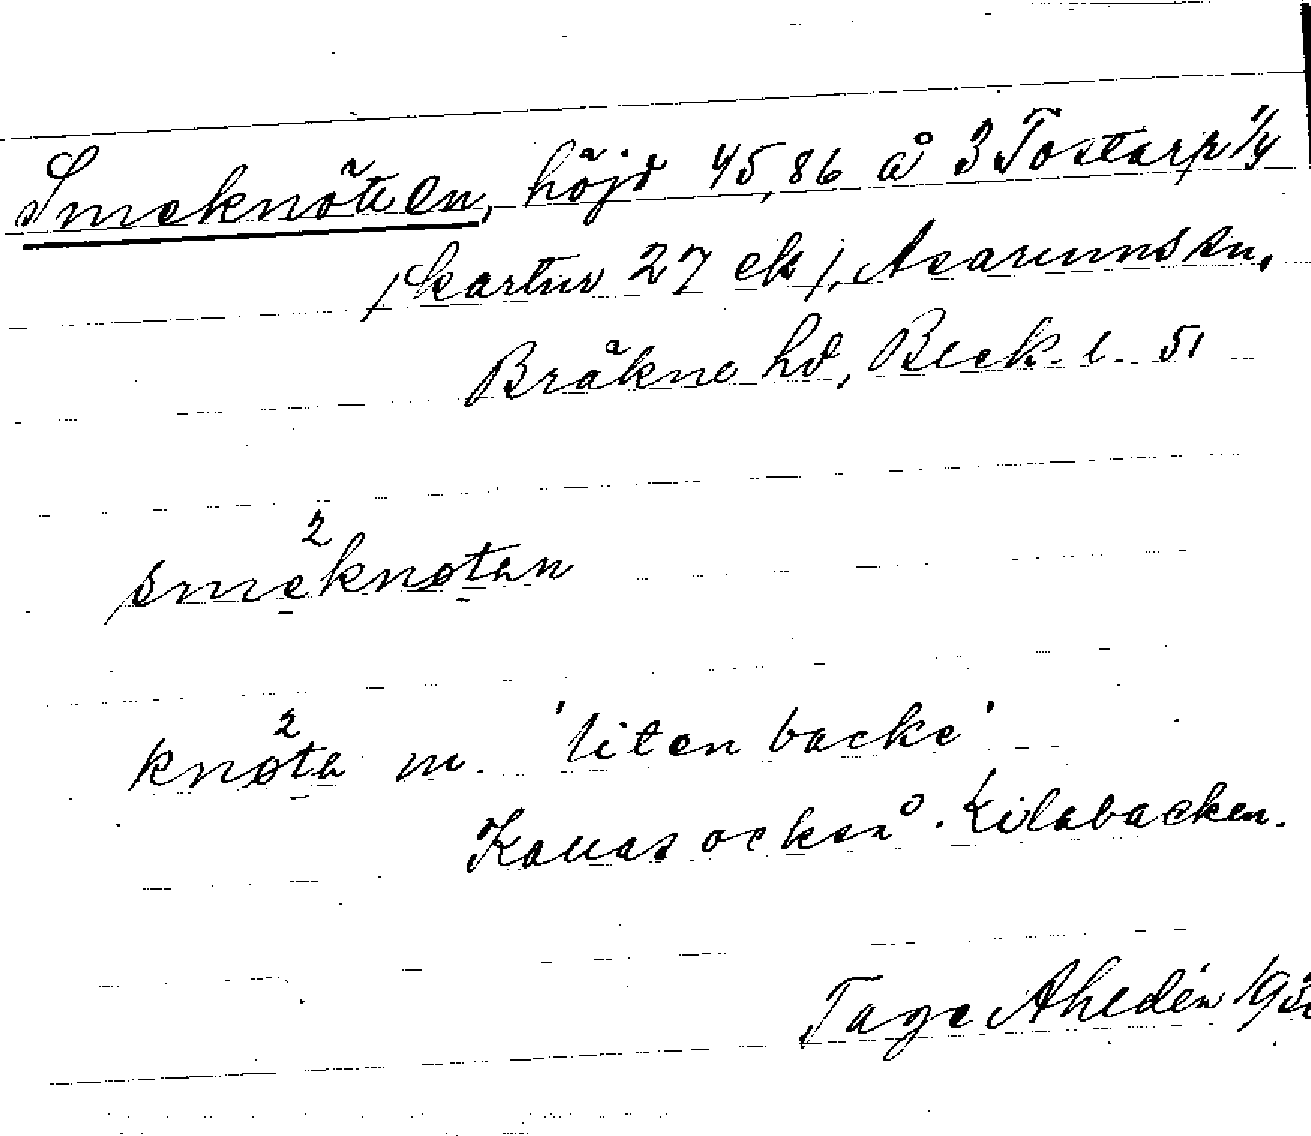 Smeknöten, höjd 45,86 å 3 Tostarp 1/4
/kartnr 27 ek/, Asarums sn,
Bräkne hd, Blek. l. 51
2
smeknøtan
2
knøta m. 'liten backe'
Kallas också Kilabacken.
Tage Ahldén 193